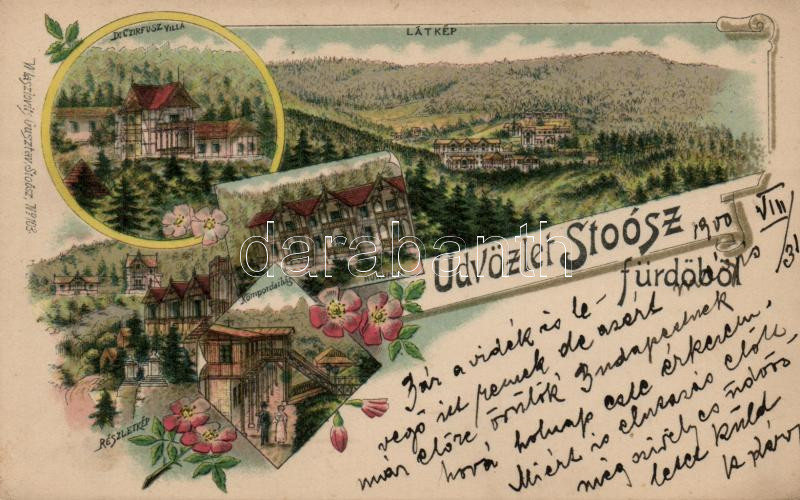 Dr CZIRFUSZ VILLA
LÁTKÉP
Wlaszlovits Gusztáv, Stoósz, No 103.
Üdvözlet Stoósz
fürdőből
Kompordaiház
RÉSZLETKÉP
darabanth
1900 VIII/31
Bár a vidék is le-
vegő itt remek de azért ma is
már előre örülök Budapestnek
hová holnap este érkezem.
Miért is elutazás előtt
még szivélyes üdvöz-
letet küld